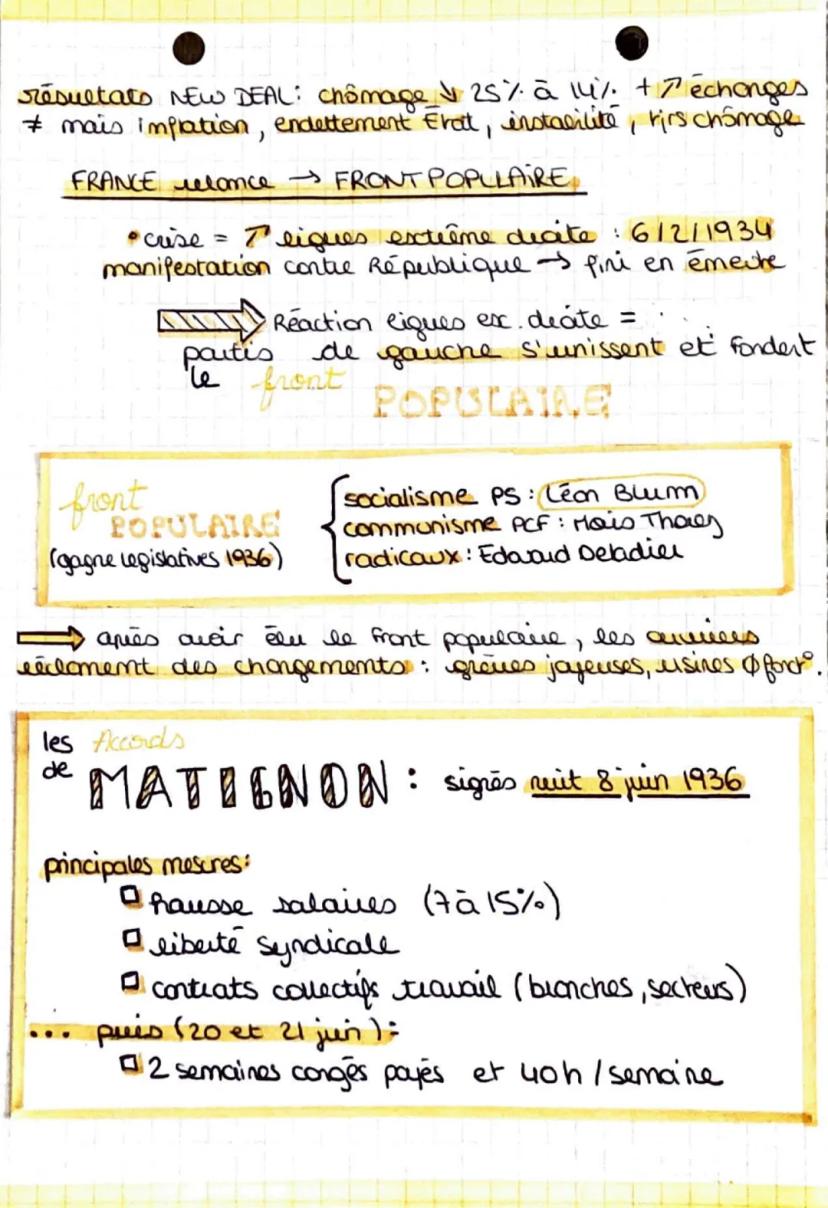 résultats NEW DEAL: chômage ↘ 25% à 14% + ↗ échanges
≠ mais inflation, endettement Etat, instabilité, tjrs chômage
FRANCE relance → FRONT POPULAIRE
• crise = ↗ ligues extrême droite : 6/2/1934
manifestation contre République → fini en émeute
⇒ Réaction ligues ex. droite =
partis de gauche s'unissent et fondent
le front POPULAIRE
front
POPULAIRE
(gagne legislatives 1936)
socialisme PS : Léon Blum
communisme PCF : Mais Thorez
radicaux : Edouard Deladier
⇒ après avoir élu le front populaire, les ouvriers
réclament des changements : grèves joyeuses, usines ∅ fonct°.
les Accords
de MATIGNON : signés nuit 8 juin 1936
principales mesures:
□ hausse salaires (7 à 15%)
□ liberté syndicale
□ contrats collectifs travail (branches, secteurs)
... puis (20 et 21 juin):
□ 2 semaines congés payés et 40h/semaine